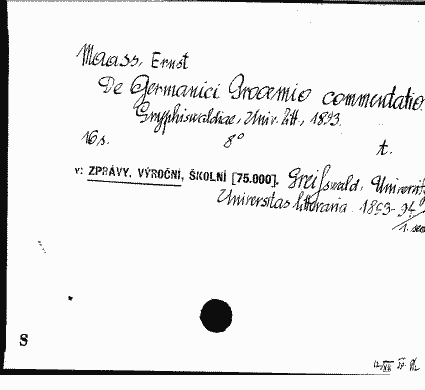 Maass, Ernst
De Germanici Prooemio commentatio
Gryphiswaldiae, Univ. litt., 1893
16 s. 8° t.
v: ZPRÁVY, VÝROČNÍ, ŠKOLNÍ [75.000], Greifswald, Universit
Universitas litteraria 1893-94
S